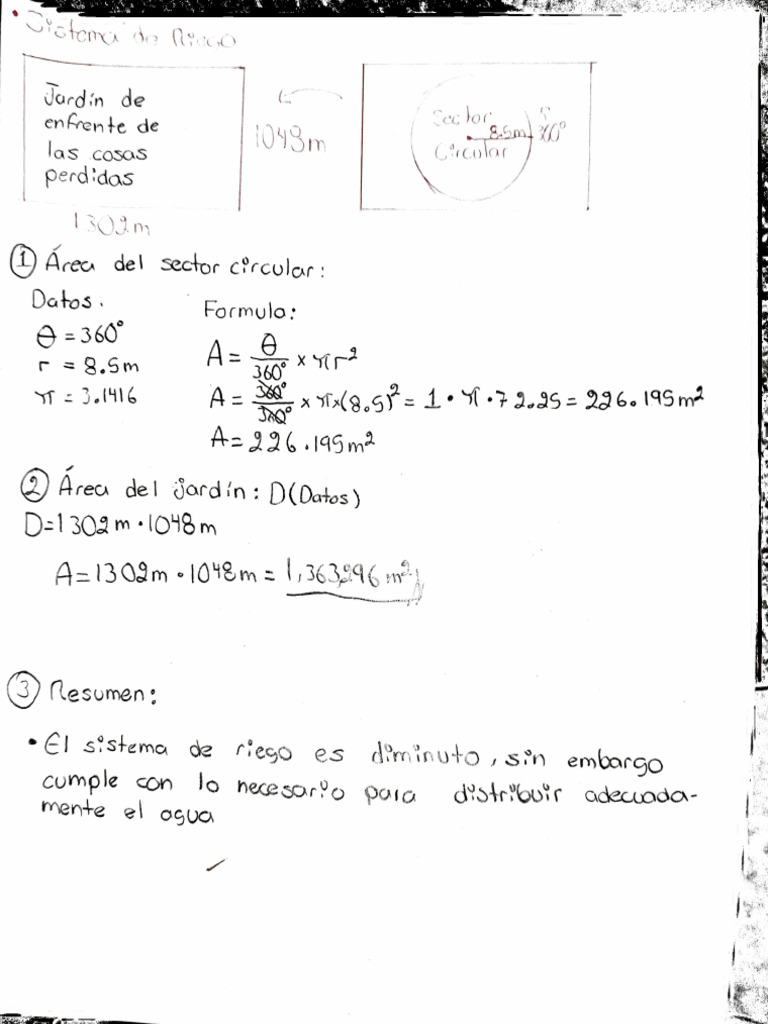 • Sistema de Riego
Jardín de
enfrente de
las cosas
perdidas
1302m
1048m
Sector
Circular
8.5m
360°
① Área del sector circular:
Datos.
θ = 360°
r = 8.5m
π = 3.1416
Formula:
A = θ/360° × πr²
A = 360°/360° × π×(8.5)² = 1 • π • 72.25 = 226.195m²
A = 226.195m²
② Área del jardín: D(Datos)
D=1302m • 1048m
A=1302m • 1048m = 1,363,296 m²
③ Resumen:
• El sistema de riego es diminuto, sin embargo
cumple con lo necesario para distribuir adecuada-
mente el agua